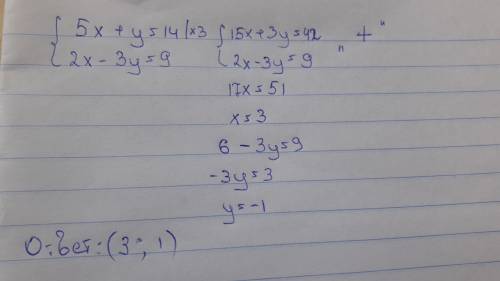 { 5x + y = 14 | ×3 { 15x + 3y = 42 " + "
{ 2x - 3y = 9 { 2x - 3y = 9
17x = 51
x = 3
6 - 3y = 9
-3y = 3
y = -1
Ответ: (3; 1)